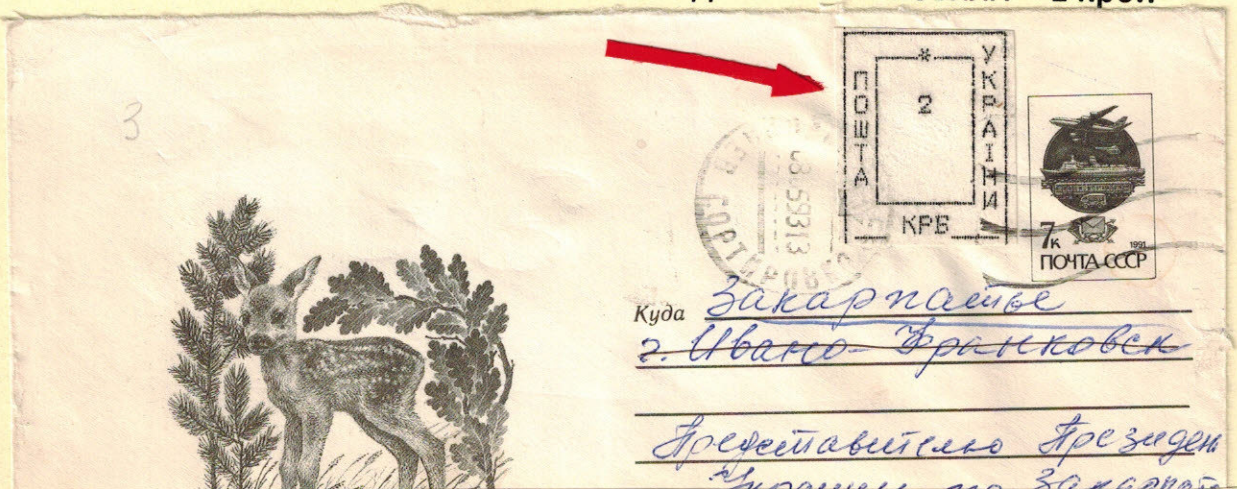 3
ПОШТА
*
2
УКРАЇНИ
КРБ
7к
1991
ПОЧТА СССР
Куда Закарпатье
г. Ивано-Франковск
Представителю Президен
Украины по Закарпат